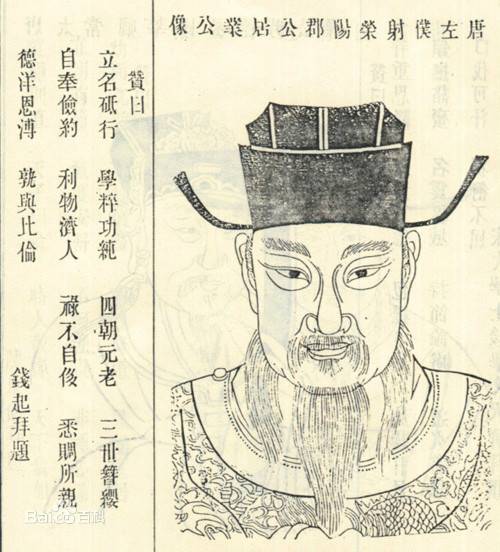 唐左僕射滎陽郡公居業公像
贊曰
立名砥行 學粹功純 四朝元老 三世簪纓
自奉儉約 利物濟人 祿不自侈 悉賙所親
德洋恩溥 孰與比倫
錢起拜題
Bai百科